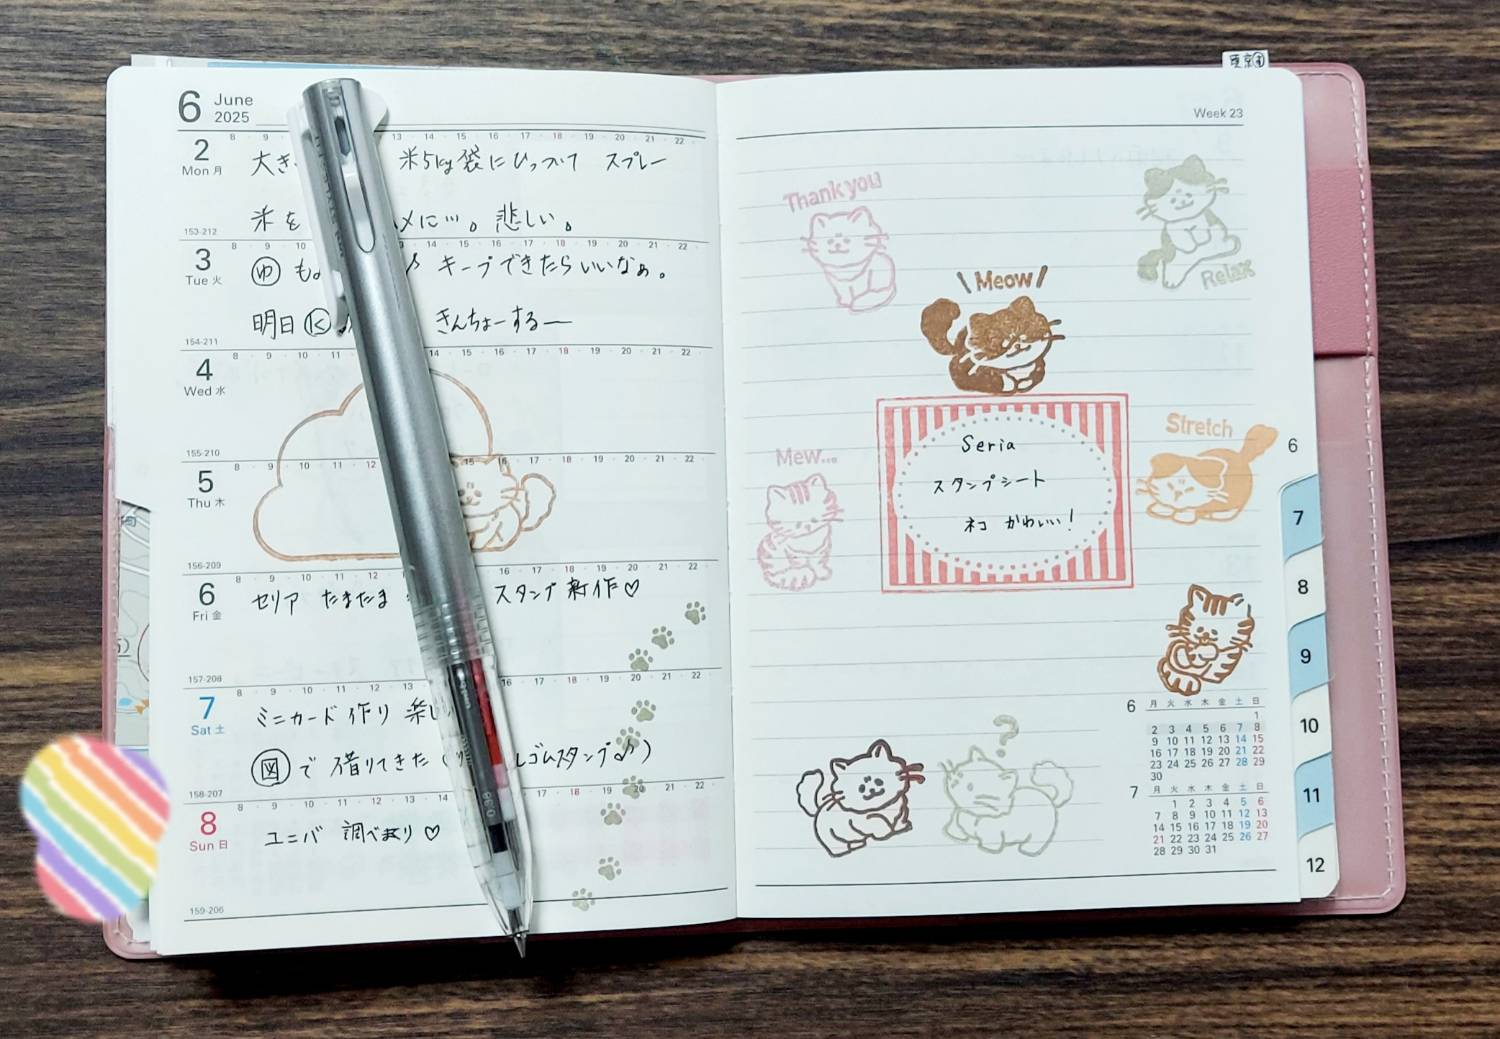 東京
6 June
2025
8 9 13 14 15 16 17 18 19 20 21 22
2 Mon 月
大き 米5kg袋にひっついて スプレー
米を メに…。悲しい。
153-212
8 9 10 13 14 15 16 17 18 19 20 21 22
3 Tue 火
ゆ も。 ♪ キープできたらいいなぁ。
明日 きんちょーするー
154-211
8 9 10 11 14 15 16 17 18 19 20 21 22
4 Wed 水
155-210
8 9 10 11 12 15 16 17 18 19 20 21 22
5 Thu 木
156-209
8 9 10 11 12 16 17 18 19 20 21 22
6 Fri 金
セリア たまたま スタンプ新作♡
157-208
8 9 10 11 12 13 16 17 18 19 20 21 22
7 Sat 土
ミニカード作り 楽し
図 で 借りてきた ( ゴムスタンプ♪)
158-207
8 9 10 11 12 13 14 17 18 19 20 21 22
8 Sun 日
ユニバ 調べまくり♡
159-206
Week 23
Thank you
Relax
\Meow/
Stretch
Mew...
Seria
スタンプシート
ネコ かわいい!
?
6 月 火 水 木 金 土 日
1
2 3 4 5 6 7 8
9 10 11 12 13 14 15
16 17 18 19 20 21 22
23 24 25 26 27 28 29
30
7 月 火 水 木 金 土 日
1 2 3 4 5 6
7 8 9 10 11 12 13
14 15 16 17 18 19 20
21 22 23 24 25 26 27
28 29 30 31
6
7
8
9
10
11
12